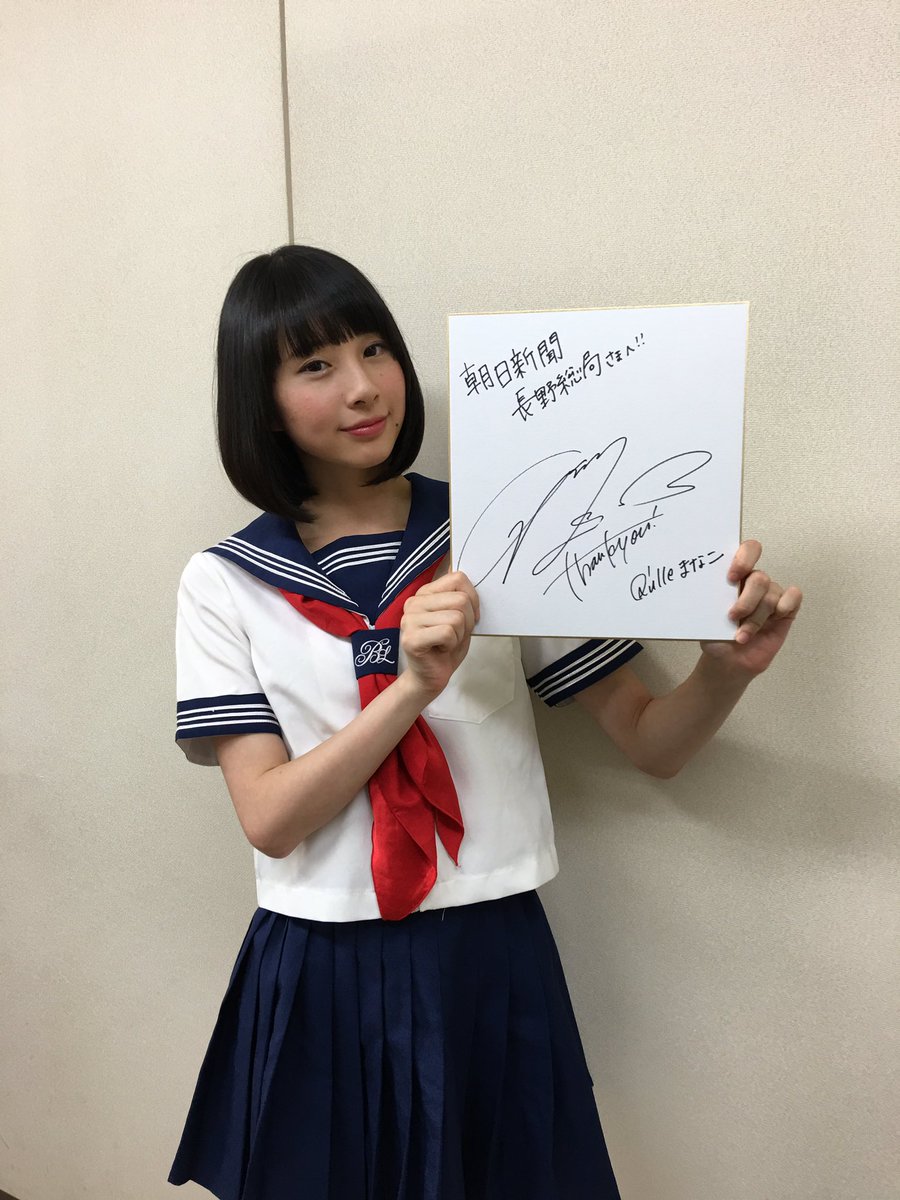 朝日新聞
長野総局さまへ!!
Thank you!
Q'ulle まなこ
BL